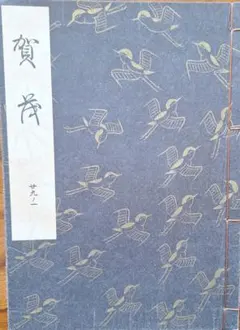 賀茂
廿九ノ一